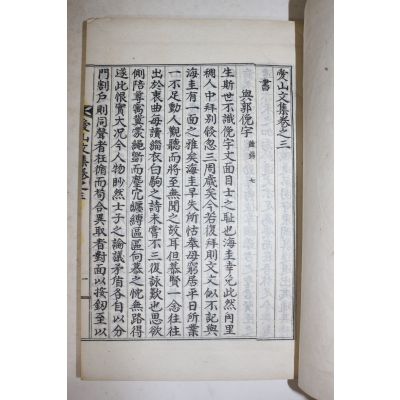 愛山文集卷之三
書
與郭俛宇 鍾錫 七
生斯世不識俛宇文面目士之恥也海圭幸免此然向里
稠人中拜別倏忽三周歲矣今若復拜則文丈似不記與
海圭有一面之雅矣海圭早失所怙奉母窮居平日所業
一不足動人觀聽而將至無聞之故耳但慕賢一念往往
出於衷曲每讀緇衣白駒之詩未嘗不三復詠歎也思欲
側陪尊冀蒙繩而塵冗纏縛區區向慕之忱無路得
遂此恨實大况今人物眇然士子之論議矛盾各自以分
門割戶則同聲者枉循而苟合異取者對面以按釰至以
愛山文集卷之三 一